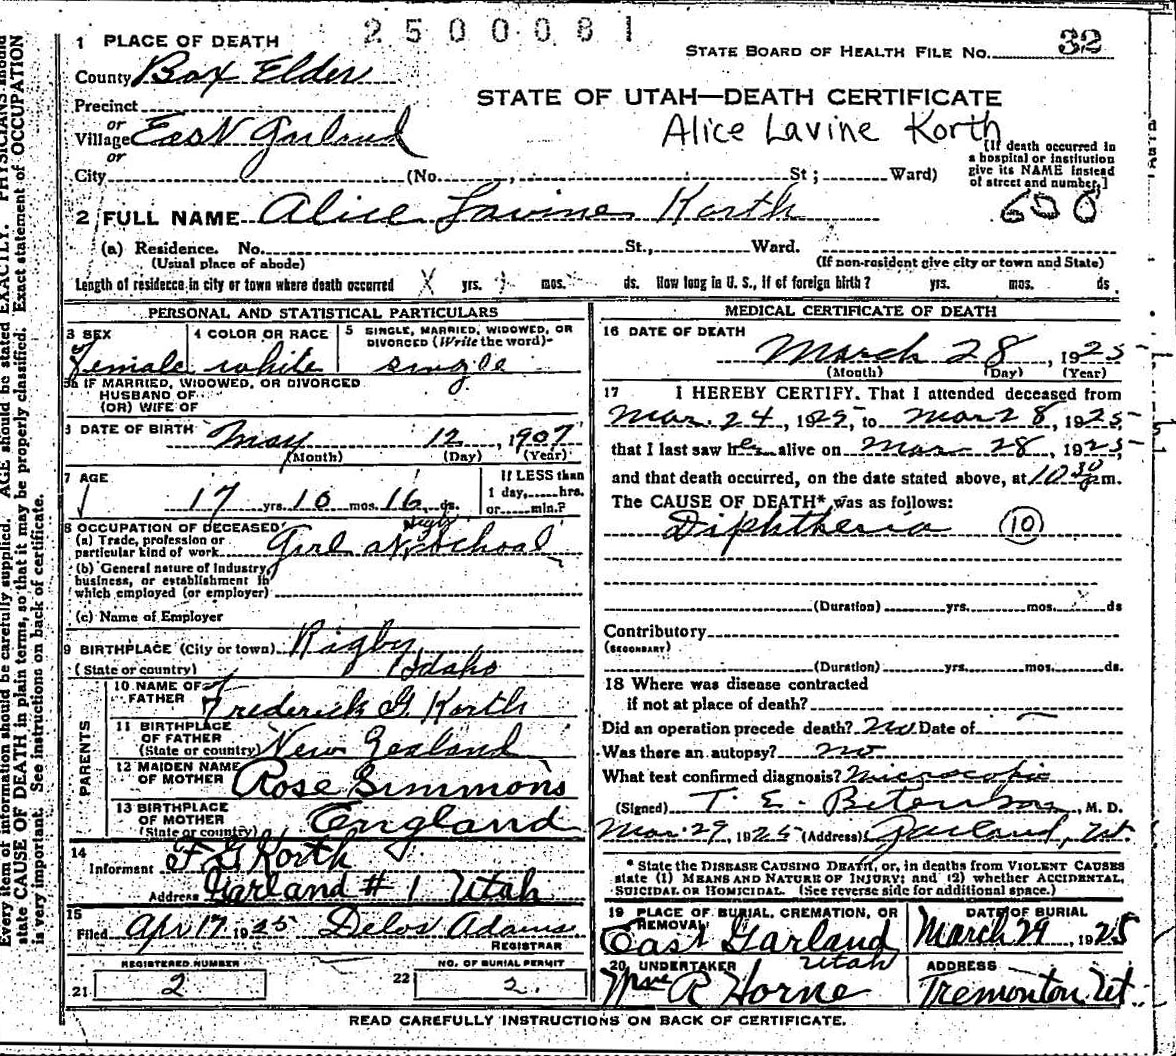 2500081
STATE BOARD OF HEALTH FILE No. 32
1 PLACE OF DEATH
County Box Elder
STATE OF UTAH—DEATH CERTIFICATE
Precinct
or
Village East Garland
Alice Lavine Korth
or
City (No. , St; Ward)
[If death occurred in
a hospital or institution
give its NAME instead
of street and number.]
2 FULL NAME Alice Lavine Korth
600
(a) Residence. No. St., Ward.
(Usual place of abode) (If non-resident give city or town and State)
Length of residence in city or town where death occurred yrs. mos. ds. How long in U. S., if of foreign birth? yrs. mos. ds
PERSONAL AND STATISTICAL PARTICULARS
3 SEX
Female
4 COLOR OR RACE
white
5 SINGLE, MARRIED, WIDOWED, OR
DIVORCED (Write the word)
single
5a IF MARRIED, WIDOWED, OR DIVORCED
HUSBAND OF
(OR) WIFE OF
DATE OF BIRTH May 12, 1907
(Month) (Day) (Year)
7 AGE
17 yrs. 10 mos. 16 ds.
If LESS than
1 day, hrs.
or min.?
8 OCCUPATION OF DECEASED
(a) Trade, profession or
particular kind of work Girl at High School
(b) General nature of Industry,
business, or establishment in
which employed (or employer)
(c) Name of Employer
9 BIRTHPLACE (City or town) Rigby
(State or country) Idaho
PARENTS
10 NAME OF
FATHER Frederick G. Korth
11 BIRTHPLACE
OF FATHER
(State or country) New Zealand
12 MAIDEN NAME
OF MOTHER Rose Simmons
13 BIRTHPLACE
OF MOTHER
(State or country) England
14
Informant F. G Korth
Address Garland # 1 Utah
15
Filed Apr 17 1925 Delos Adams
REGISTRAR
REGISTERED NUMBER
21 2
NO. OF BURIAL PERMIT
22 2.
MEDICAL CERTIFICATE OF DEATH
16 DATE OF DEATH
March 28, 1925
(Month) (Day) (Year)
17 I HEREBY CERTIFY. That I attended deceased from
Mar. 24, 1925, to Mar 28, 1925,
that I last saw her alive on Mar 28, 1925
and that death occurred, on the date stated above, at 10 30 pm.
The CAUSE OF DEATH* was as follows:
Diphtheria 10
(Duration) yrs. mos. ds
Contributory
(SECONDARY)
(Duration) yrs. mos. ds.
18 Where was disease contracted
if not at place of death?
Did an operation precede death? No Date of
Was there an autopsy? no
What test confirmed diagnosis? Microscopic
(Signed) T. E. , M. D.
Mar. 29, 1925 (Address) Garland, Ut.
* State the DISEASE CAUSING DEATH, or, in deaths from VIOLENT CAUSES
state (1) MEANS AND NATURE OF INJURY; and (2) whether ACCIDENTAL,
SUICIDAL OR HOMICIDAL. (See reverse side for additional space.)
19 PLACE OF BURIAL, CREMATION, OR
REMOVAL
East Garland
Utah
DATE OF BURIAL
March 29, 1925
20 UNDERTAKER
R Horne
ADDRESS
Tremonton Ut.
READ CAREFULLY INSTRUCTIONS ON BACK OF CERTIFICATE.
Every item of information should be carefully supplied. AGE should be stated EXACTLY. PHYSICIANS should
state CAUSE OF DEATH in plain terms, so that it may be properly classified. Exact statement of OCCUPATION
is very important. See instructions on back of certificate.